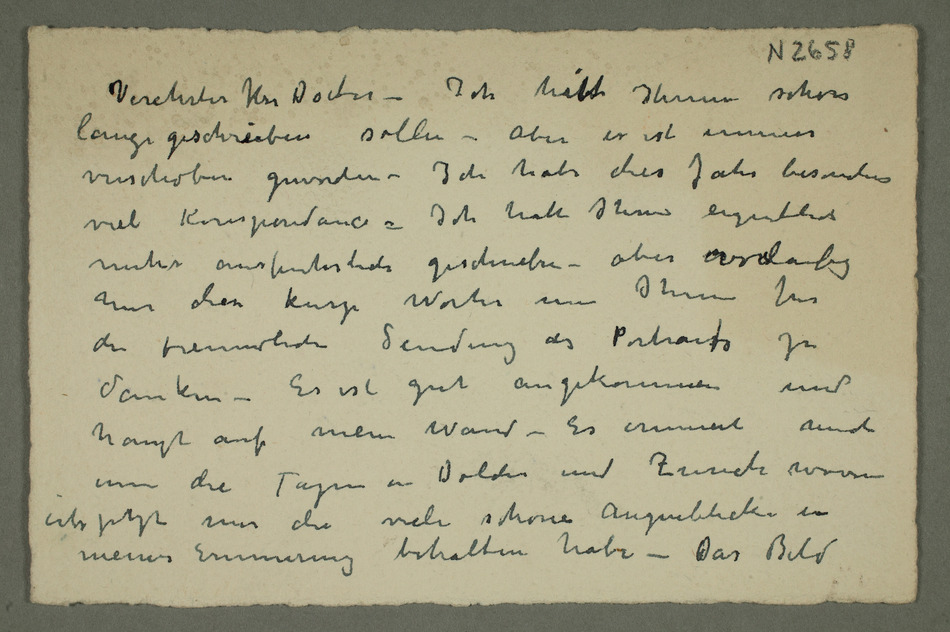 N 2658
Verehrter Herr Doctor – Ich hätte Ihnen schon
lange geschrieben sollen – aber es ist immer
verschoben geworden – Ich habe dies Jahr besonders
viel Korrespondance – Ich hatte Ihnen eigentlich
mehr ausfuhrlich geschrieben – aber vorlaufig
nur diese kurze Worte um Ihnen fur
die freundliche Sendung des Portraits zu
danken – Es ist gut angekommen und
hangt auf meine Wand – Es erinnert mich
um die Tagen in Dolder und Zurich wovon
ich jetzt nur die viele schone Augenblicke in
meiner Erinnerung behalten habe – Das Bild